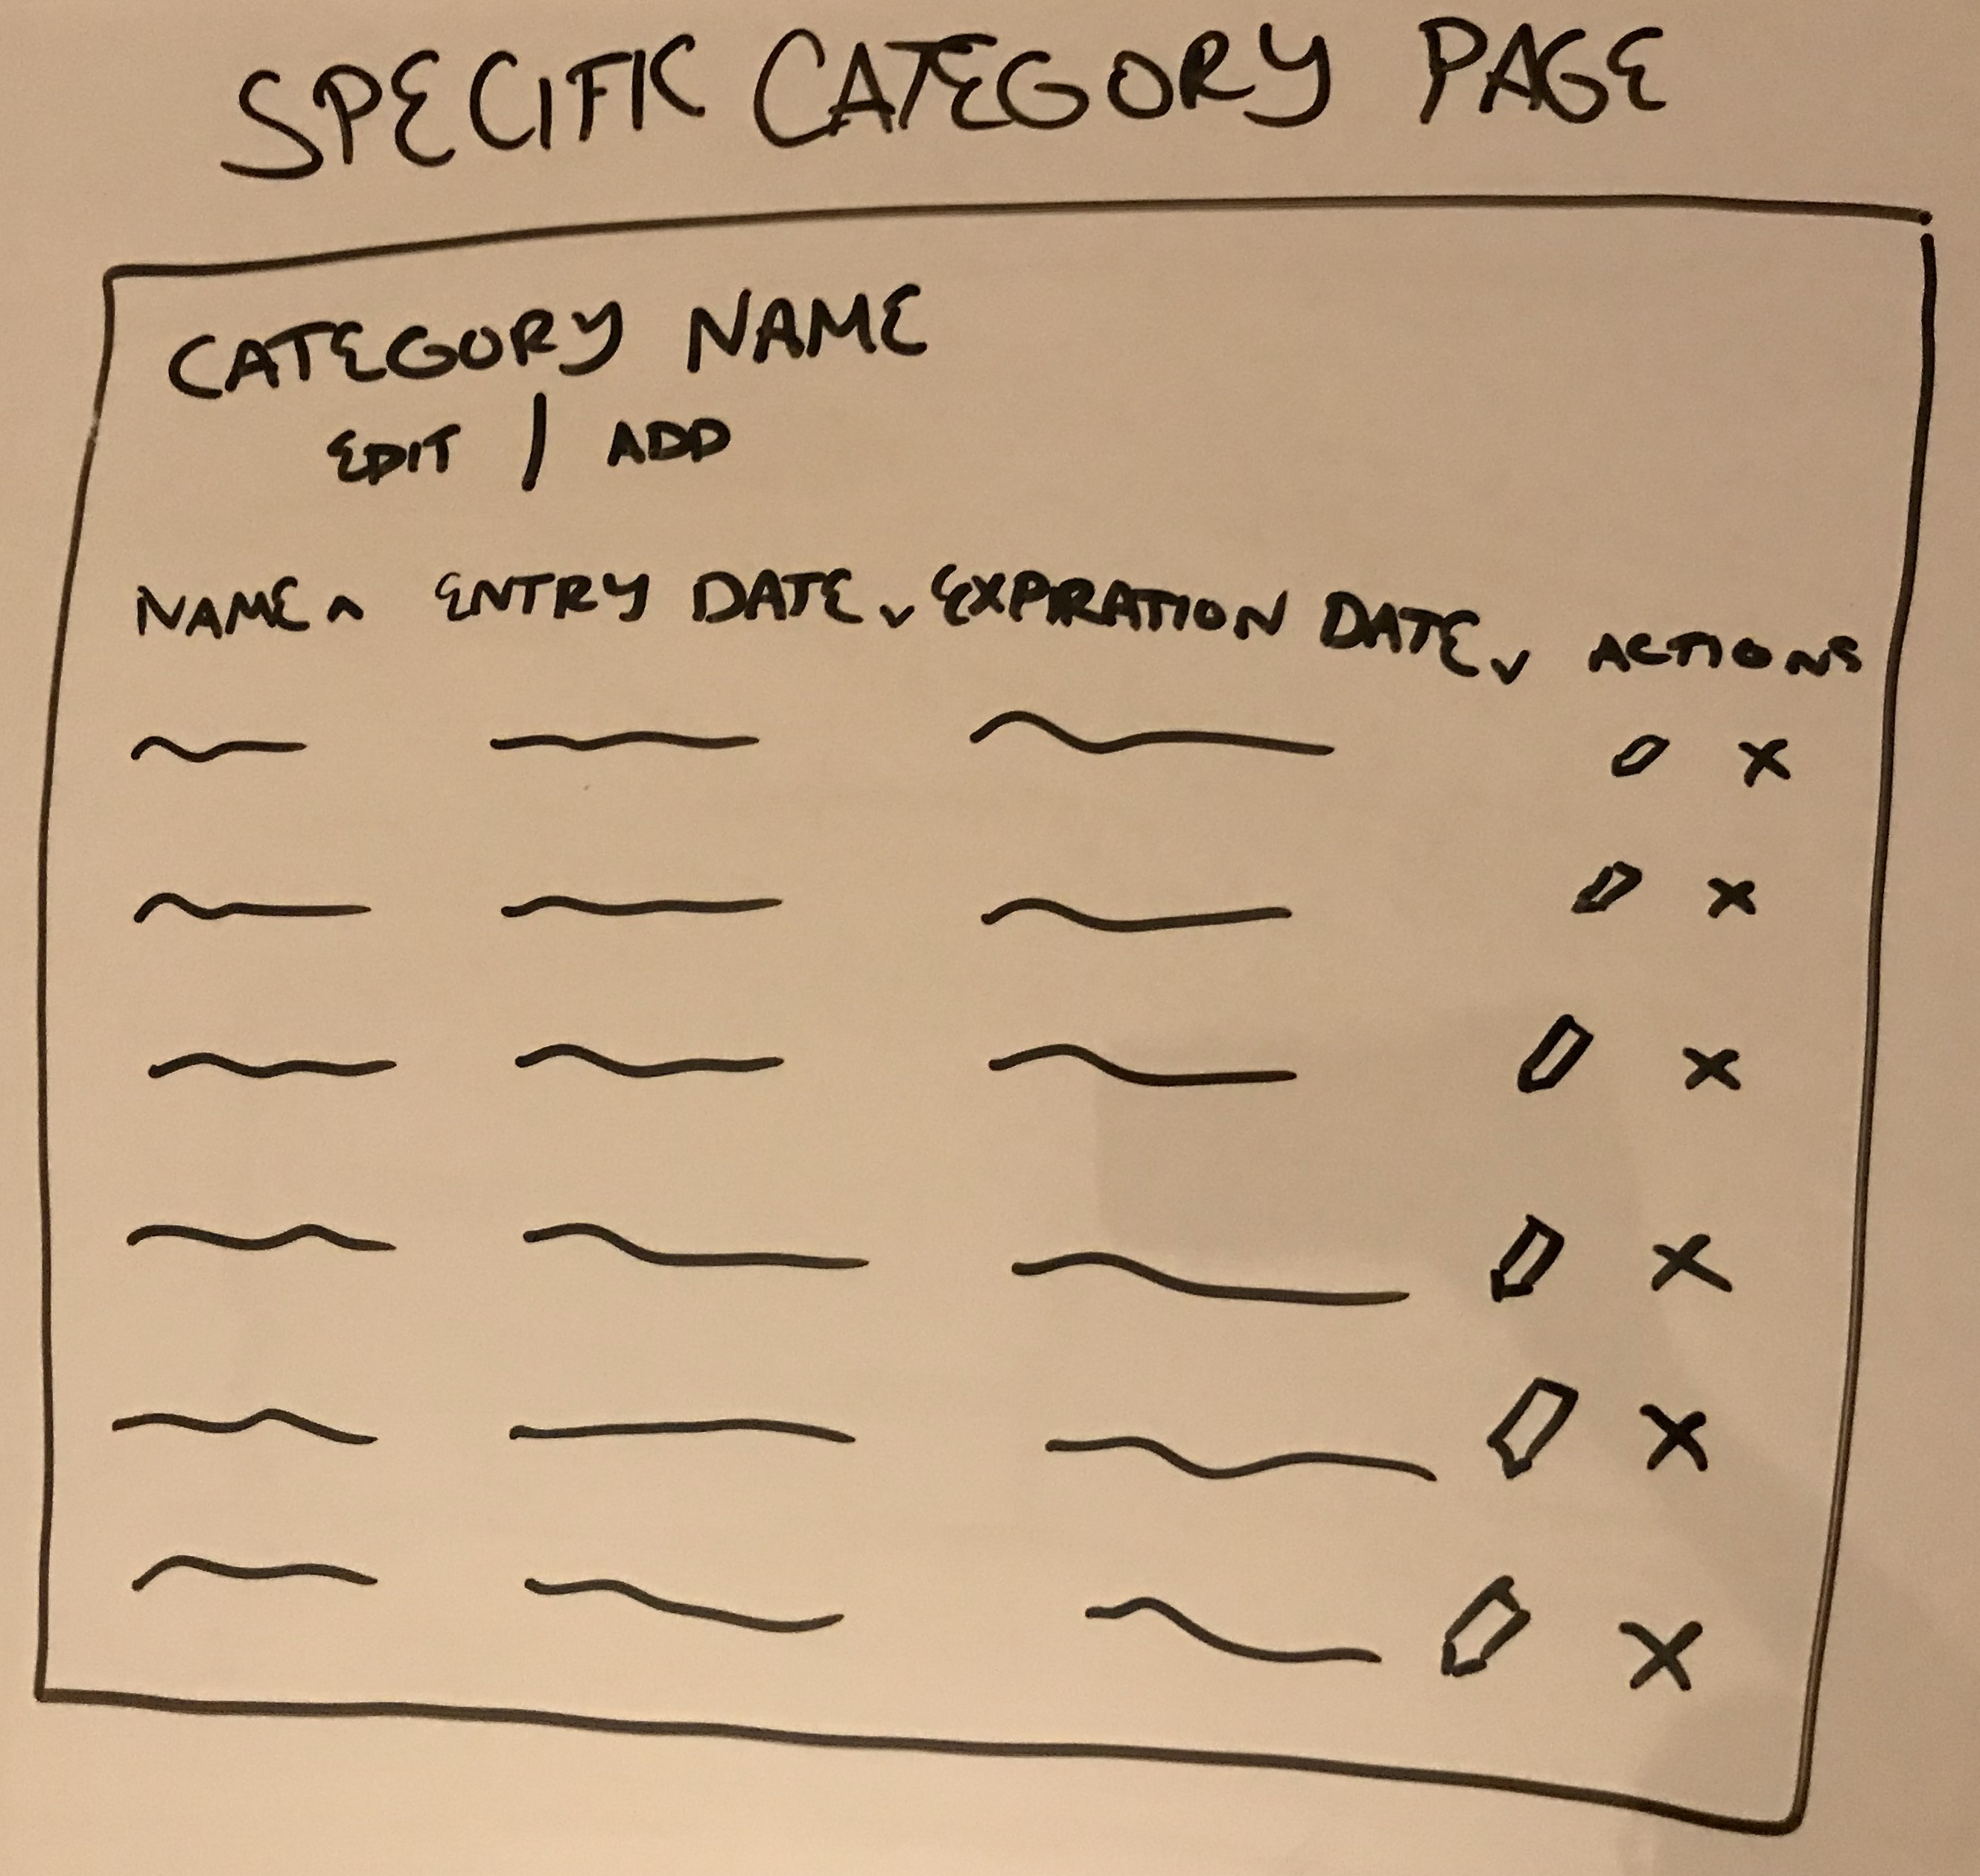 SPECIFIC CATEGORY PAGE
CATEGORY NAME
EDIT | ADD
NAME ^ ENTRY DATE v EXPIRATION DATE v ACTIONS
X
X
X
X
X
X